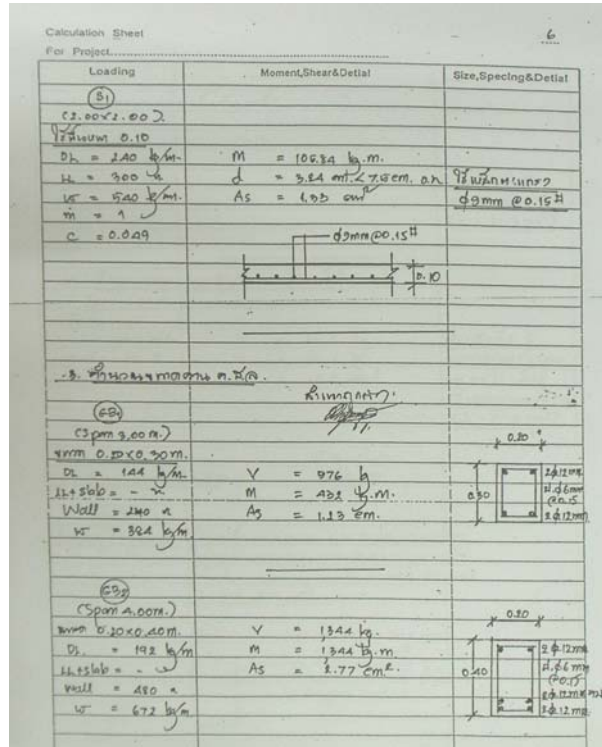 Calculation Sheet
6
For Project
Loading Moment,Shear&Detial Size,Specing&Detial
S1
(2.00x2.00)
0.10
DL = 240 kg/m. M = 106.84 kg.m.
LL = 300 " d = 3.24 cm. < 7.5 cm. o.k
w = 540 kg/m. As = 1.33 cm² φ9mm @ 0.15#
m = 1
c = 0.049 φ9mm@0.15#
0.10
GB1
(Span 3.00 m.) 0.20
ขนาด 0.20x0.30m.
DL = 144 kg/m. V = 576 kg 2φ12mm
LL+slab = - " M = 432 kg.m. 0.30 ป.φ6mm
Wall = 240 " As = 1.13 cm. @0.15
w = 384 kg/m. 2φ12mm
GB2
(Span 4.00m.) 0.20
ขนาด 0.20x0.40m. V = 1344 kg.
DL = 192 kg/m M = 1344 kg.m 2φ12mm
LL+slab = - " As = 2.77 cm². 0.40 ป.φ6mm
Wall = 480 " @0.15
w = 672 kg/m 2φ12mm